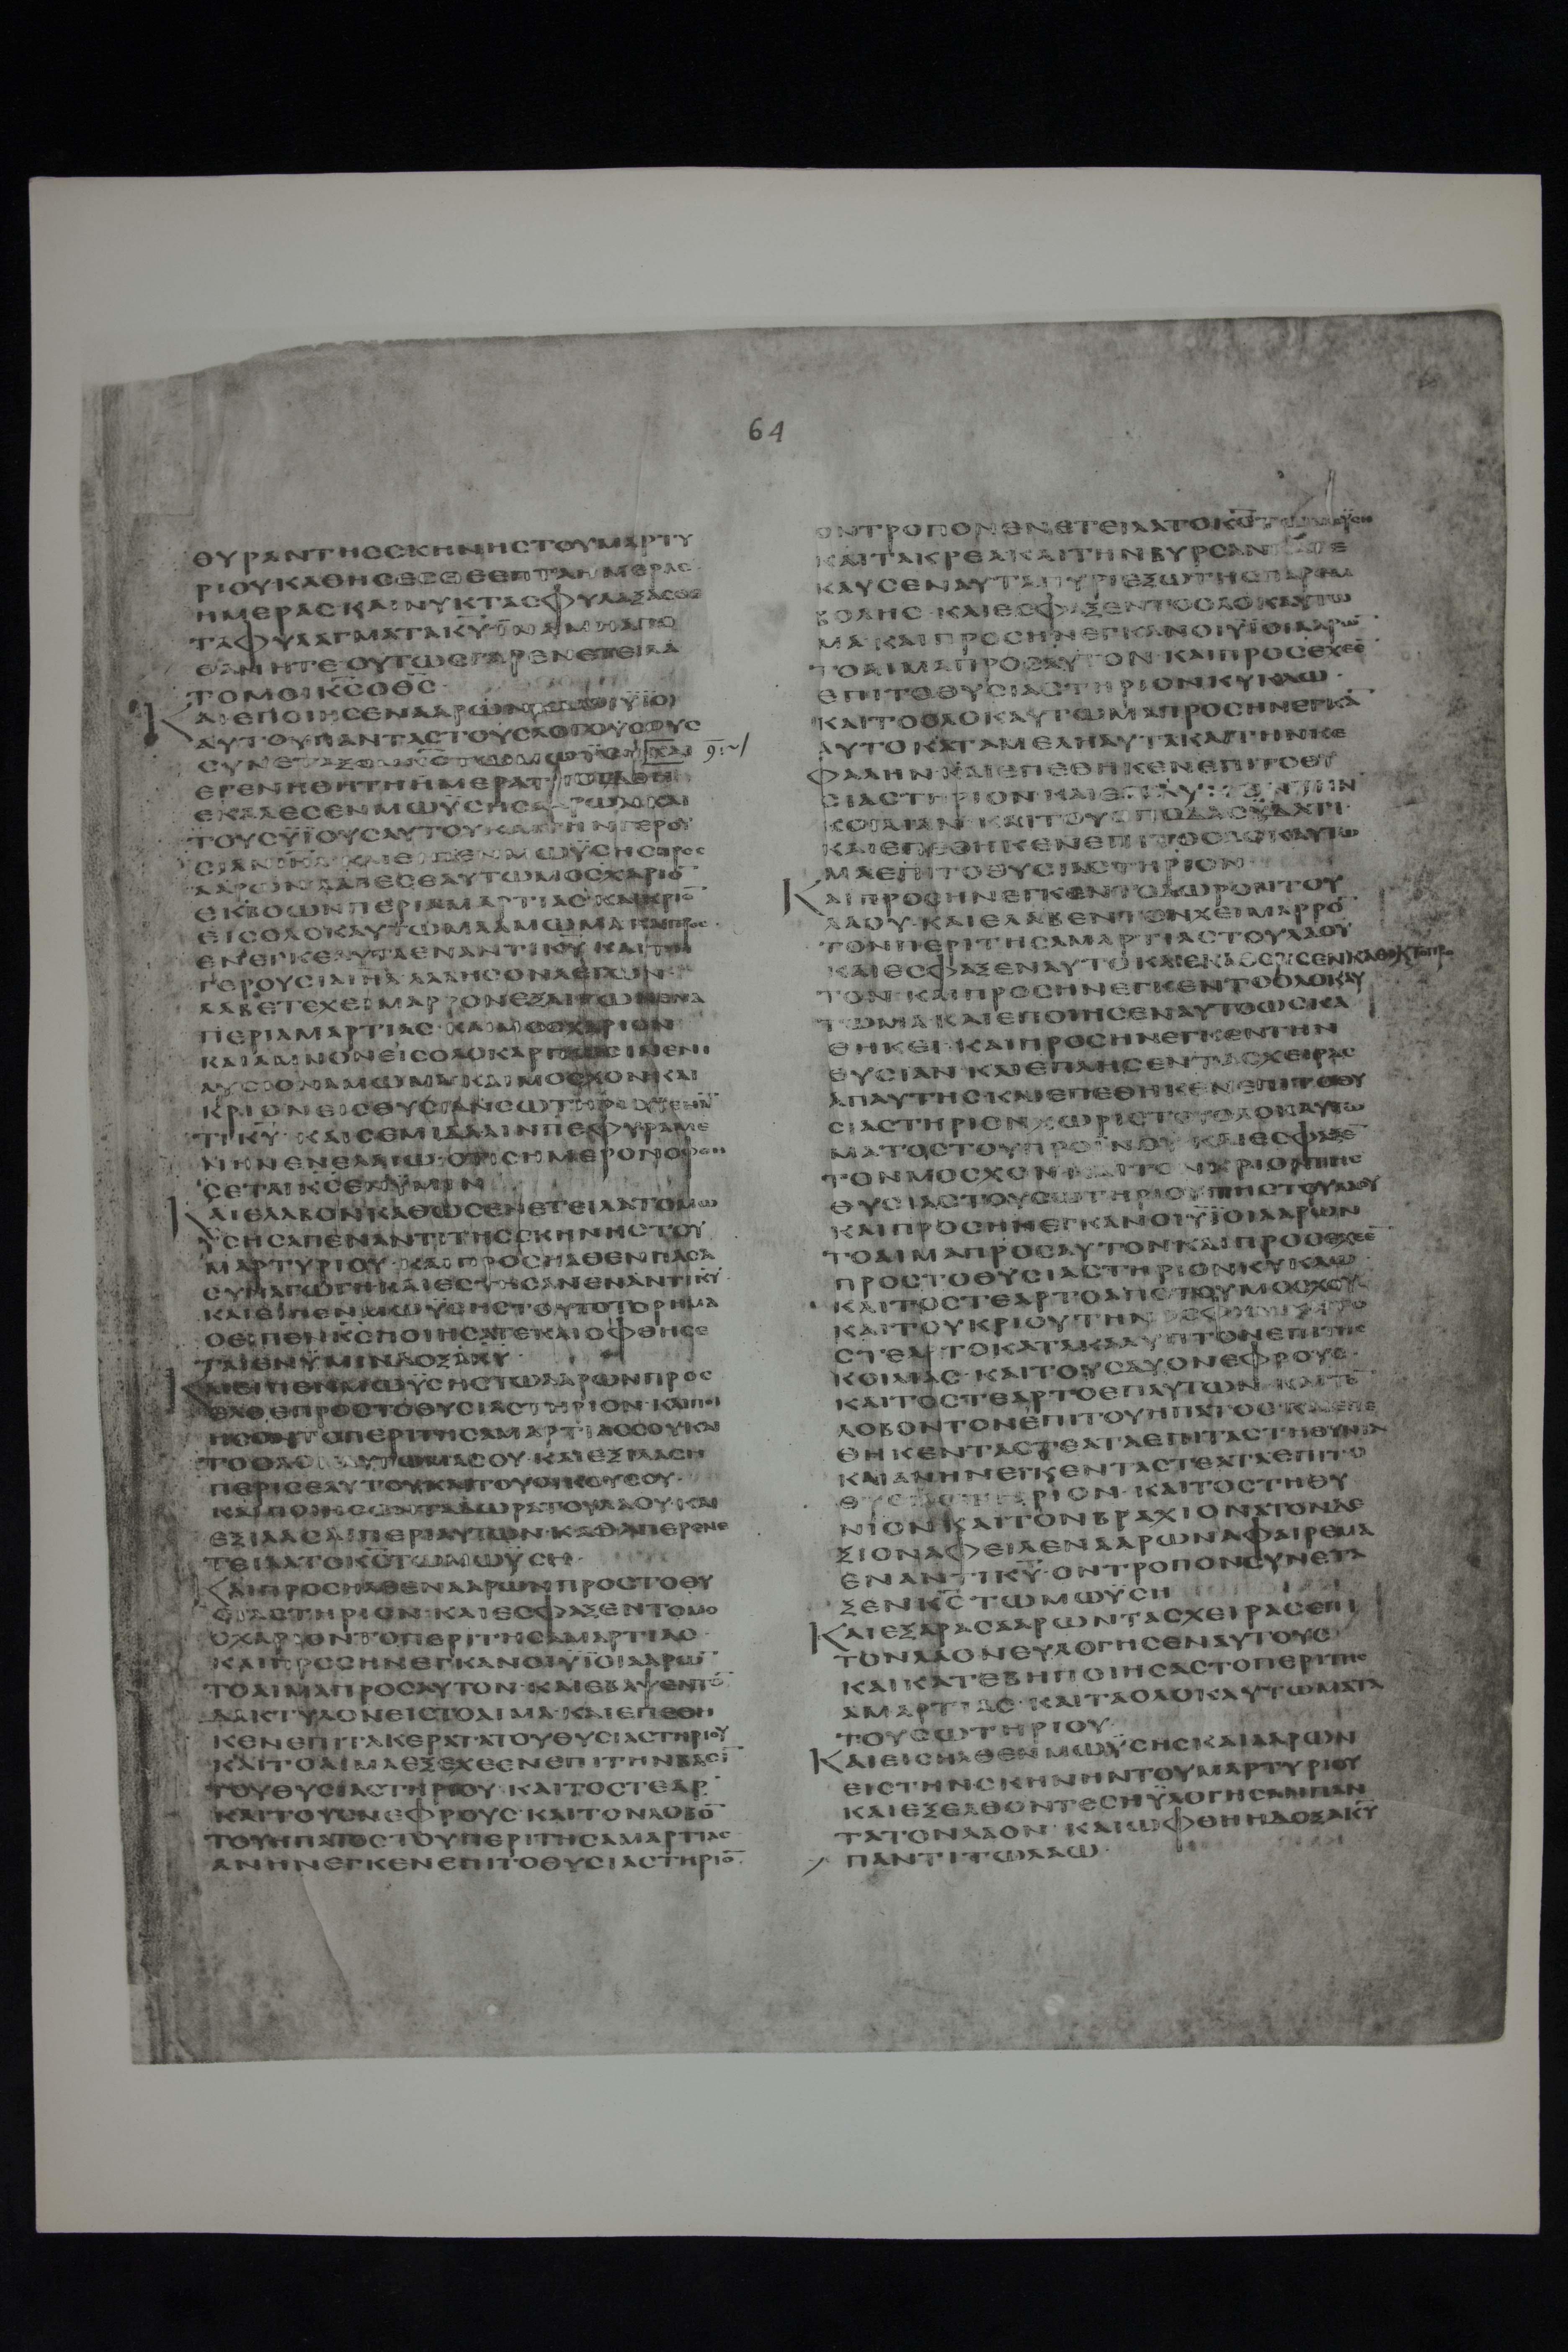 64
ΘΥΡΑΝΤΗΣΣΚΗΝΗΣΤΟΥΜΑΡΤΥ
ΡΙΟΥΚΑΘΗΣΕΣΘΕΕΠΤΑΗΜΕΡΑΣ
ΗΜΕΡΑΣΚΑΙΝΥΚΤΑΣΦΥΛΑΞΑΣΘΕ
ΤΑΦΥΛΑΓΜΑΤΑΚ̅Υ̅ΙΝΑΜΗΑΠΟ
ΘΑΝΗΤΕΟΥΤΩΣΓΑΡΕΝΕΤΕΙΛΑ
ΤΟΜΟΙΚ̅Σ̅ΟΘ̅Σ̅·
ΚΑΙΕΠΟΙΗΣΕΝΑΑΡΩΝΚΑΙΟΙΫΙΟΙ
ΑΥΤΟΥΠΑΝΤΑΣΤΟΥΣΛΟΓΟΥΣΟΥΣ
ΣΥΝΕΤΑΞΕΝΚ̅Σ̅ΤΩΜΩΫΣΗ ΚΑΙ
ΕΓΕΝΗΘΗΤΗΗΜΕΡΑΤΗΟΓΔΟΗ
ΕΚΑΛΕΣΕΝΜΩΫΣΗΣΑΑΡΩΝΚΑΙ
ΤΟΥΣΫΙΟΥΣΑΥΤΟΥΚΑΙΤΗΝΓΕΡΟΥ
ΣΙΑΝΙΗ̅Λ̅ΚΑΙΕΙΠΕΝΜΩΫΣΗΣΠΡΟΣ
ΑΑΡΩΝΛΑΒΕΣΕΑΥΤΩΜΟΣΧΑΡΙΟ̅
ΕΚΒΟΩΝΠΕΡΙΑΜΑΡΤΙΑΣΚΑΙΚΡΙΟ̅
ΕΙΣΟΛΟΚΑΥΤΩΜΑΑΜΩΜΑΚΑΙΠΡΟΣ
ΕΝΕΓΚΕΑΥΤΑΕΝΑΝΤΙΚ̅Υ̅ΚΑΙΤΗ
ΓΕΡΟΥΣΙΑΙΗ̅Λ̅ΛΑΛΗΣΟΝΛΕΓΩΝ
ΛΑΒΕΤΕΧΕΙΜΑΡΡΟΝΕΞΑΙΓΩΝΕΝΑ
ΠΕΡΙΑΜΑΡΤΙΑΣ·ΚΑΙΜΟΣΧΑΡΙΟΝ
ΚΑΙΑΜΝΟΝΕΙΣΟΛΟΚΑΡΠΩΣΙΝΕΝΙ
ΑΥΣΙΟΝΑΜΩΜΑ·ΚΑΙΜΟΣΧΟΝΚΑΙ
ΚΡΙΟΝΕΙΣΘΥΣΙΑΝΣΩΤΗΡΙΟΥΕΝΑΝ
ΤΙΚ̅Υ̅·ΚΑΙΣΕΜΙΔΑΛΙΝΠΕΦΥΡΑΜΕ
ΝΗΝΕΝΕΛΑΙΩ·ΟΤΙΣΗΜΕΡΟΝΟΦΘΗ
ΣΕΤΑΙΚ̅Σ̅ΕΝΫΜΙΝ
ΚΑΙΕΛΑΒΟΝΚΑΘΩΣΕΝΕΤΕΙΛΑΤΟΜΩ
ΫΣΗΣΑΠΕΝΑΝΤΙΤΗΣΣΚΗΝΗΣΤΟΥ
ΜΑΡΤΥΡΙΟΥ·ΚΑΙΠΡΟΣΗΛΘΕΝΠΑΣΑ
ΣΥΝΑΓΩΓΗΚΑΙΕΣΤΗΣΑΝΕΝΑΝΤΙΚ̅Υ̅
ΚΑΙΕΙΠΕΝΜΩΫΣΗΣΤΟΥΤΟΤΟΡΗΜΑ
ΟΕΙΠΕΝΚ̅Σ̅ΠΟΙΗΣΑΤΕΚΑΙΟΦΘΗΣΕ
ΤΑΙΕΝΫΜΙΝΔΟΞΑΚ̅Υ̅
ΚΑΙΕΙΠΕΝΜΩΫΣΗΣΤΩΑΑΡΩΝΠΡΟΣ
ΕΛΘΕΠΡΟΣΤΟΘΥΣΙΑΣΤΗΡΙΟΝ·ΚΑΙΠΟΙ
ΗΣΟΝΤΟΠΕΡΙΤΗΣΑΜΑΡΤΙΑΣΣΟΥΚΑΙ
ΤΟΟΛΟΚΑΥΤΩΜΑΣΟΥ·ΚΑΙΕΞΙΛΑΣΗ
ΠΕΡΙΣΕΑΥΤΟΥΚΑΙΤΟΥΟΙΚΟΥΣΟΥ·
ΚΑΙΠΟΙΗΣΟΝΤΑΔΩΡΑΤΟΥΛΑΟΥ·ΚΑΙ
ΕΞΙΛΑΣΑΙΠΕΡΙΑΥΤΩΝ·ΚΑΘΑΠΕΡΕΝΕ
ΤΕΙΛΑΤΟΚ̅Σ̅ΤΩΜΩΫΣΗ·
ΚΑΙΠΡΟΣΗΛΘΕΝΑΑΡΩΝΠΡΟΣΤΟΘΥ
ΣΙΑΣΤΗΡΙΟΝ·ΚΑΙΕΣΦΑΞΕΝΤΟΜΟ
ΣΧΑΡΙΟΝΤΟΠΕΡΙΤΗΣΑΜΑΡΤΙΑΣ·
ΚΑΙΠΡΟΣΗΝΕΓΚΑΝΟΙΫΙΟΙΑΑΡΩ̅
ΤΟΑΙΜΑΠΡΟΣΑΥΤΟΝ·ΚΑΙΕΒΑΨΕΝΤΟ̅
ΔΑΚΤΥΛΟΝΕΙΣΤΟΑΙΜΑ·ΚΑΙΕΠΕΘΗ
ΚΕΝΕΠΙΤΑΚΕΡΑΤΑΤΟΥΘΥΣΙΑΣΤΗΡΙΟΥ
ΚΑΙΤΟΑΙΜΑΕΞΕΧΕΕΝΕΠΙΤΗΝΒΑΣΙ̅
ΤΟΥΘΥΣΙΑΣΤΗΡΙΟΥ·ΚΑΙΤΟΣΤΕΑΡ
ΚΑΙΤΟΥΣΝΕΦΡΟΥΣ·ΚΑΙΤΟΝΛΟΒΟ̅
ΤΟΥΗΠΑΤΟΣΤΟΥΠΕΡΙΤΗΣΑΜΑΡΤΙΑΣ
ΑΝΗΝΕΓΚΕΝΕΠΙΤΟΘΥΣΙΑΣΤΗΡΙΟ̅·
ΟΝΤΡΟΠΟΝΕΝΕΤΕΙΛΑΤΟΚ̅Σ̅ΤΩΜΩΫΣΗ
ΚΑΙΤΑΚΡΕΑΚΑΙΤΗΝΒΥΡΣΑΝΚΑΤΕ
ΚΑΥΣΕΝΑΥΤΑΠΥΡΙΕΞΩΤΗΣΠΑΡΕΜ
ΒΟΛΗΣ·ΚΑΙΕΣΦΑΞΕΝΤΟΟΛΟΚΑΥΤΩ
ΜΑ·ΚΑΙΠΡΟΣΗΝΕΓΚΑΝΟΙΫΙΟΙΑΑΡΩ̅
ΤΟΑΙΜΑΠΡΟΣΑΥΤΟΝ·ΚΑΙΠΡΟΣΕΧΕΕ̅
ΕΠΙΤΟΘΥΣΙΑΣΤΗΡΙΟΝΚΥΚΛΩ·
ΚΑΙΤΟΟΛΟΚΑΥΤΩΜΑΠΡΟΣΗΝΕΓΚΑ̅
ΑΥΤΟΚΑΤΑΜΕΛΗΑΥΤΑΚΑΙΤΗΝΚΕ
ΦΑΛΗΝ·ΚΑΙΕΠΕΘΗΚΕΝΕΠΙΤΟΘΥ
ΣΙΑΣΤΗΡΙΟΝ·ΚΑΙΕΠΛΥΝΕΝΤΗΝ
ΚΟΙΛΙΑΝ·ΚΑΙΤΟΥΣΠΟΔΑΣΫΔΑΤΙ·
ΚΑΙΕΠΕΘΗΚΕΝΕΠΙΤΟΟΛΟΚΑΥΤΩ
ΜΑΕΠΙΤΟΘΥΣΙΑΣΤΗΡΙΟΝ
ΚΑΙΠΡΟΣΗΝΕΓΚΕΝΤΟΔΩΡΟΝΤΟΥ
ΛΑΟΥ·ΚΑΙΕΛΑΒΕΝΤΟΝΧΕΙΜΑΡΡΟ̅
ΤΟΝΠΕΡΙΤΗΣΑΜΑΡΤΙΑΣΤΟΥΛΑΟΥ
ΚΑΙΕΣΦΑΞΕΝΑΥΤΟ·ΚΑΙΕΚΑΘΑΡΙΣΕΝΚΑΘΑΚ
ΤΟΝ·ΚΑΙΠΡΟΣΗΝΕΓΚΕΝΤΟΟΛΟΚΑΥ
ΤΩΜΑ·ΚΑΙΕΠΟΙΗΣΕΝΑΥΤΟΩΣΚΑ
ΘΗΚΕΙ·ΚΑΙΠΡΟΣΗΝΕΓΚΕΝΤΗΝ
ΘΥΣΙΑΝ·ΚΑΙΕΠΛΗΣΕΝΤΑΣΧΕΙΡΑΣ
ΑΠΑΥΤΗΣ·ΚΑΙΕΠΕΘΗΚΕΝΕΠΙΤΟΘΥ
ΣΙΑΣΤΗΡΙΟΝΧΩΡΙΣΤΟΥΟΛΟΚΑΥΤΩ
ΜΑΤΟΣΤΟΥΠΡΟΙΝΟΥ·ΚΑΙΕΣΦΑΞΕ̅
ΤΟΝΜΟΣΧΟΝΚΑΙΤΟΝΚΡΙΟΝΤΗΣ
ΘΥΣΙΑΣΤΟΥΣΩΤΗΡΙΟΥΤΗΣΤΟΥΛΑΟΥ
ΚΑΙΠΡΟΣΗΝΕΓΚΑΝΟΙΫΙΟΙΑΑΡΩΝ
ΤΟΑΙΜΑΠΡΟΣΑΥΤΟΝΚΑΙΠΡΟΣΕΧΕΕ̅
ΠΡΟΣΤΟΘΥΣΙΑΣΤΗΡΙΟΝΚΥΚΛΩ·
ΚΑΙΤΟΣΤΕΑΡΤΟΑΠΟΤΟΥΜΟΣΧΟΥ·
ΚΑΙΤΟΥΚΡΙΟΥΤΗΝΟΣΦΥΝΚΑΙΤΟ
ΣΤΕΑΡΤΟΚΑΤΑΚΑΛΥΠΤΟΝΕΠΙΤΗΣ
ΚΟΙΛΙΑΣ·ΚΑΙΤΟΥΣΔΥΟΝΕΦΡΟΥΣ·
ΚΑΙΤΟΣΤΕΑΡΤΟΕΠΑΥΤΩΝ·ΚΑΙΤΟ̅
ΛΟΒΟΝΤΟΝΕΠΙΤΟΥΗΠΑΤΟΣ·ΚΑΙΕΠΕ
ΘΗΚΕΝΤΑΣΤΕΑΤΑΕΠΙΤΑΣΤΗΘΥΝΙΑ
ΚΑΙΑΝΗΝΕΓΚΕΝΤΑΣΤΕΑΤΑΕΠΙΤΟ
ΘΥΣΙΑΣΤΗΡΙΟΝ·ΚΑΙΤΟΣΤΗΘΥ
ΝΙΟΝΚΑΙΤΟΝΒΡΑΧΙΟΝΑΤΟΝΔΕ
ΞΙΟΝΑΦΕΙΛΕΝΑΑΡΩΝΑΦΑΙΡΕΜΑ
ΕΝΑΝΤΙΚ̅Υ̅·ΟΝΤΡΟΠΟΝΣΥΝΕΤΑ
ΞΕΝΚ̅Σ̅ΤΩΜΩΫΣΗ
ΚΑΙΕΞΑΡΑΣΑΑΡΩΝΤΑΣΧΕΙΡΑΣΕΠΙ
ΤΟΝΛΑΟΝΕΥΛΟΓΗΣΕΝΑΥΤΟΥΣ
ΚΑΙΚΑΤΕΒΗΠΟΙΗΣΑΣΤΟΠΕΡΙΤΗΣ
ΑΜΑΡΤΙΑΣ·ΚΑΙΤΑΟΛΟΚΑΥΤΩΜΑΤΑ
ΤΟΥΣΩΤΗΡΙΟΥ·
ΚΑΙΕΙΣΗΛΘΕΝΜΩΫΣΗΣΚΑΙΑΑΡΩΝ
ΕΙΣΤΗΝΣΚΗΝΗΝΤΟΥΜΑΡΤΥΡΙΟΥ
ΚΑΙΕΞΕΛΘΟΝΤΕΣΗΫΛΟΓΗΣΑΝΠΑΝ
ΤΑΤΟΝΛΑΟΝ·ΚΑΙΩΦΘΗΗΔΟΞΑΚ̅Υ̅
ΠΑΝΤΙΤΩΛΑΩ·